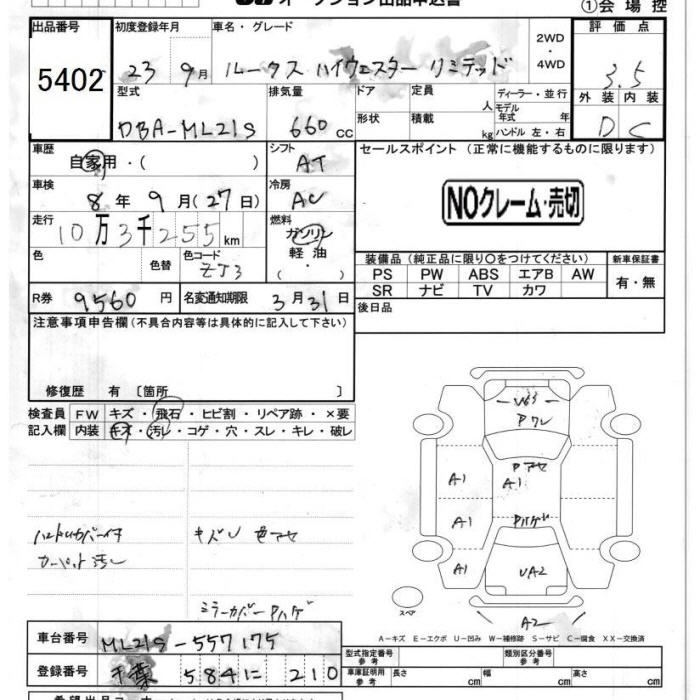 オークション出品申込書
①会場控
出品番号 初度登録年月 車名・グレード 2WD・4WD 評価点
5402 23 9月 ルークス ハイウェスター リミテッド 3.5
型式 排気量 ドア 定員 人 ディーラー・並行 外装 内装
DBA-ML21S 660cc 形状 積載 kg モデル年式 年 ハンドル 左・右 D C
車歴 自家用・( ) シフト AT セールスポイント (正常に機能するものに限ります)
車検 8年9月(27日) 冷房 AC NOクレーム・売切
走行 10万3千255km 燃料 ガソリン 軽油 ( )
色 色替 色コード ZJ3 装備品(純正品に限り○をつけてください) 新車保証書
PS PW ABS エアB AW 有・無
SR ナビ TV カワ
R券 9560円 名変通知期限 3月31日 後日品
注意事項申告欄(不具合内容等は具体的に記入して下さい)
修復歴 有 [箇所 ]
検査員 FW キズ・飛石・ヒビ割・リペア跡・×要
記入欄 内装 キズ・汚レ・コゲ・穴・スレ・キレ・破レ
U63
Pワレ
Pアセ
A1 A1
A1 Pハゲ
A1 UA2
A2
カーペット汚レ
キズU 色アセ
ミラーカバーPハゲ
スペア
A-キズ E-エクボ U-凹み W-補修跡 S-サビ C-腐食 XX-交換済
車台番号 ML21S-557175 型式指定番号 参考 類別区分番号 参考
登録番号 千葉 584に 210 車庫証明用 参考 長さ cm 幅 cm 高さ cm